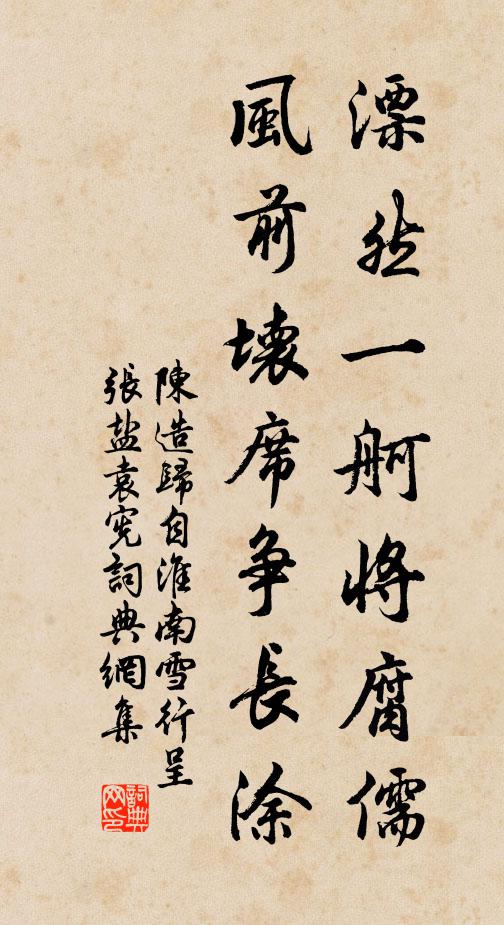 漂然一舸將腐儒
風前壞席爭長涂
陳造歸自淮南雪行呈
張盐袁宪詞典網集
詞典网印